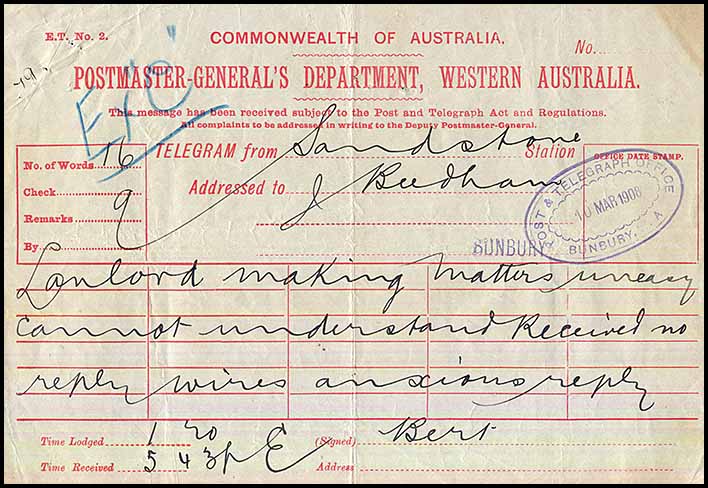 E.T. No. 2.
COMMONWEALTH OF AUSTRALIA.
No...
POSTMASTER-GENERAL'S DEPARTMENT, WESTERN AUSTRALIA.
This message has been received subject to the Post and Telegraph Act and Regulations.
All complaints to be addressed in writing to the Deputy Postmaster-General.
No. of Words 16
TELEGRAM from Sandstone Station
OFFICE DATE STAMP.
Check 9
Addressed to J Beedham
POST & TELEGRAPH OFFICE
10 MAR 1908
BUNBURY. W A
Remarks
By
BUNBURY
Lanlord making matters uneasy
cannot understand Received no
reply wires anxious reply
Time Lodged 1 20
(Signed) Bert
Time Received 5 43p E
Address